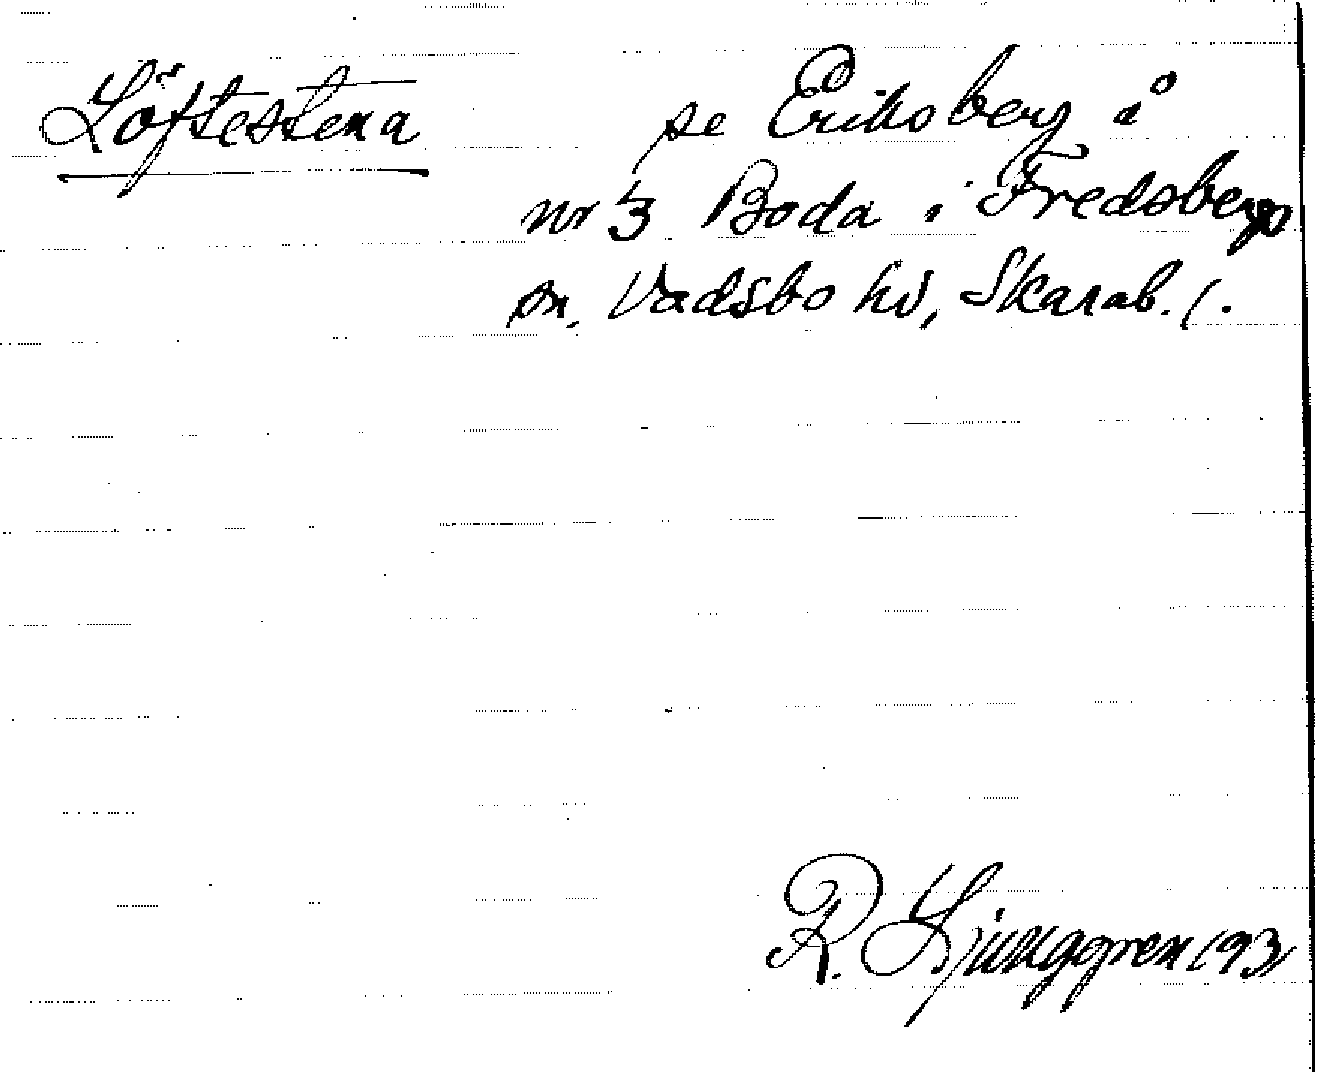 Löftestena se Eriksberg å
nr 3 Boda i Fredsbergs
sn, Vadsbo hd, Skarab. l.
R. Ljunggren 193